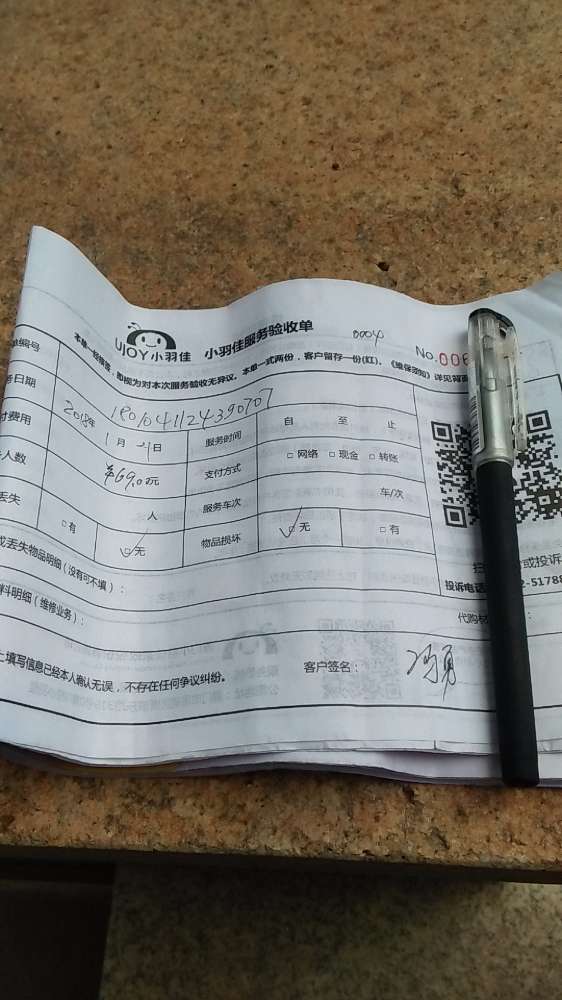 UJOY小羽佳 小羽佳服务验收单 0004
No.006
本单一经接签,即视为对本次服务验收无异议。本单一式两份,客户留存一份(红)。《维保须知》详见背面
单编号 1801041124390707
务日期 2018年 1月 4日 服务时间 自 至 止
付费用 ¥69.00元 支付方式 □网络 □现金 □转账
人数 人 服务车次 车/次
丢失 □有 ✓无 物品损坏 ✓□无 □有
或丢失物品明细(没有可不填):
投诉电话 2-5178
料明细(维修业务): 代购材
上填写信息已经本人确认无误,不存在任何争议纠纷。 客户签名: 冯勇